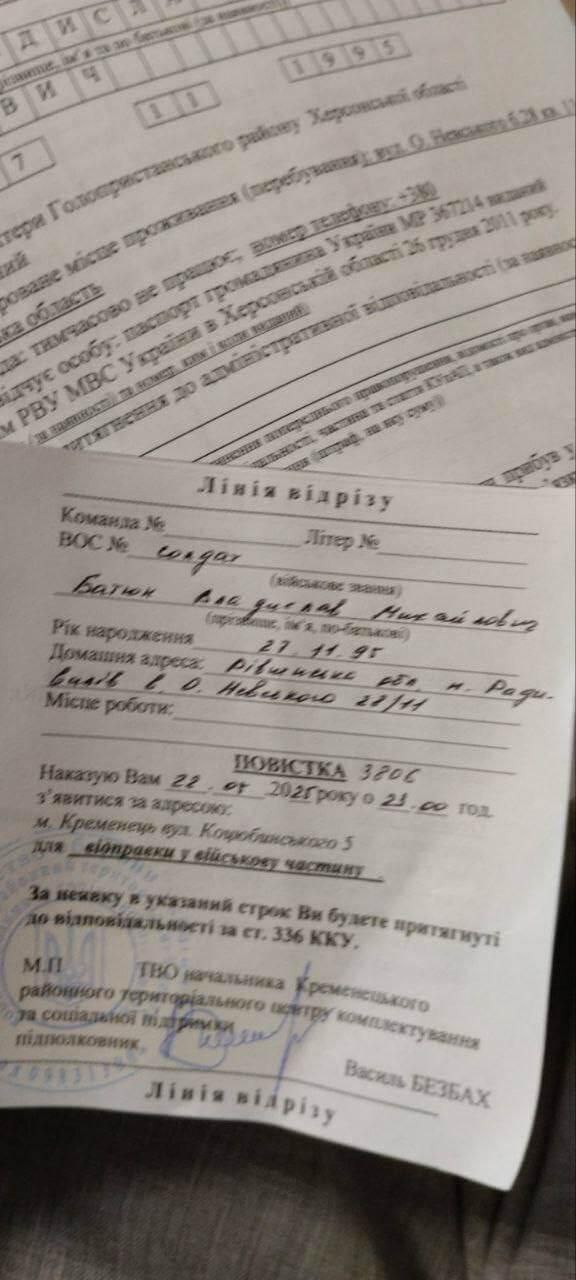 ДИСЛА
ім'я та по батькові (за наявності)
ВИЧ
11
1995
7
Голопристанського району Херсонської області
місце проживання (перебування): вул. О. Невського б.28 кв. 11
ка область
тимчасово не працює; номер телефону: +380
особу: паспорт громадянина України МР 367214 виданий
РВУ МВС України в Херсонській області 26 грудня 2011 року.
до адміністративної відповідальності (за наявнос
прибув у
Лінія відрізу
Команда № Літер №
ВОС № солдат
(військове звання)
Батюн Владислав Михайлович
(прізвище, ім'я, по-батькові)
Рік народження 27.11.95
Домашня адреса: Рівненська обл. м. Ради-
вилів в. О. Невського 28/11
Місце роботи:
ПОВІСТКА 3806
Наказую Вам 22. 2025 року о 23.00 год.
з'явитися за адресою:
м. Кременець вул. Коцюбинського 5
для відправки у військову частину .
За неявку в указаний строк Ви будете притягнуті
до відповідальності за ст. 336 ККУ.
М.П ТВО начальника Кременецького
районного територіального центру комплектування
та соціальної підтримки
підполковник
Василь БЕЗБАХ
Лінія відрізу